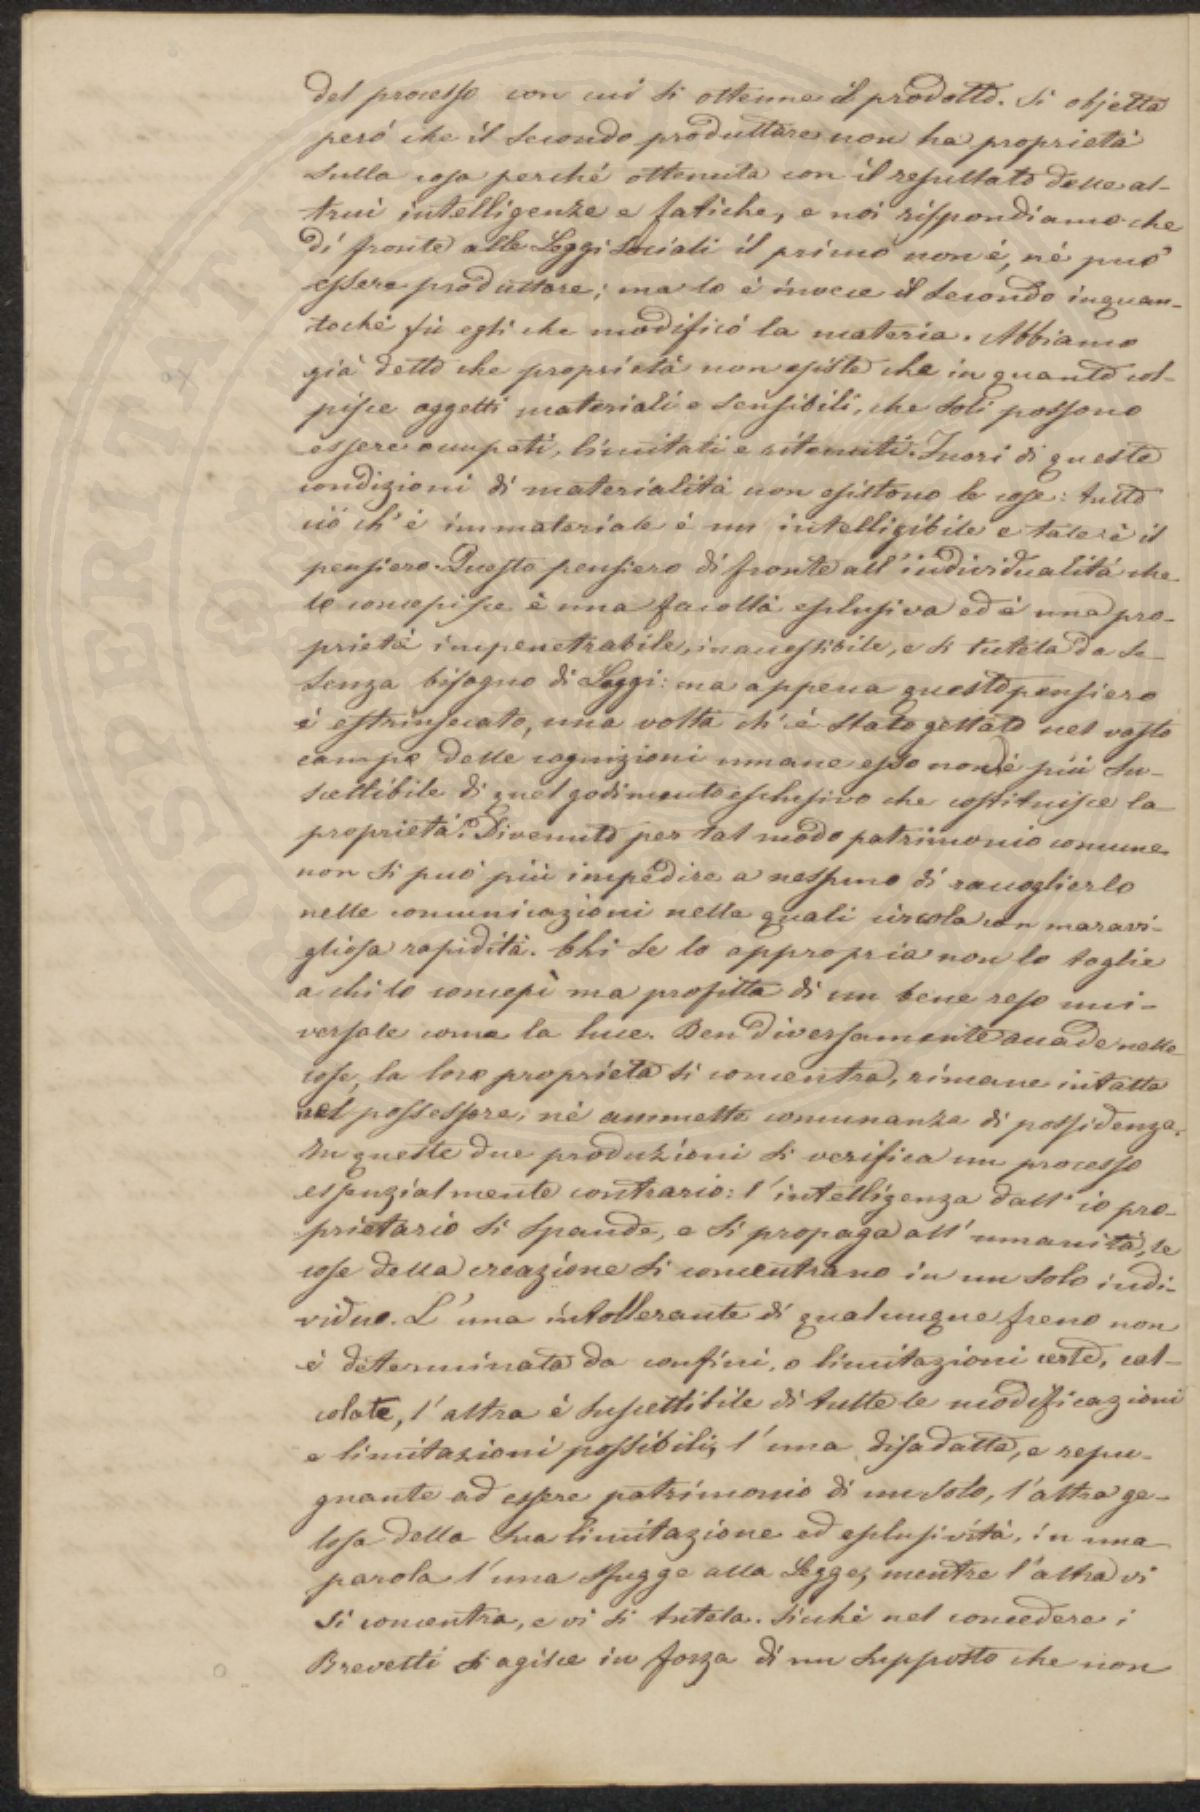 del processo con cui si ottenne il prodotto. Si objetta
peró che il secondo produttore non ha proprietá
sulla cosa perché ottenuta con il resultato delle al-
trui intelligenze e fatiche, e noi rispondiamo che
di fronte alle Leggi Sociali il primo non é, né puó
essere produttore; ma lo é invece il secondo inquan-
toché fú egli che modificó la materia. Abbiamo
giá detto che proprietá non esiste che in quanto col-
pisce oggetti materiali e sensibili, che soli possono
essere occupati, limitati e ritenuti. Fuori di queste
condizioni di materialitá non esistono le cose: tutto
ció ch'é immateriale é un intelligibile e tale é il
pensiero. Questo pensiero di fronte all'individualitá che
lo concepisce é una facoltá esclusiva ed é una pro-
prietá impenetrabile, inaccessibile, e si tutela da se
senza bisogno di Leggi: ma appena questo pensiero
é estrinsecato, una volta ch'é stato gettato nel vasto
campo delle cognizioni umane esso non é piú su-
scettibile di quel godimento esclusivo che costituisce la
proprietá. Divenuto per tal modo patrimonio comune
non si puó piú impedire a nessuno di raccoglierlo
nelle comunicazioni nelle quali circola con maravi-
gliosa rapiditá. Chi se lo appropria non lo toglie
a chi lo concepì ma profitta di un bene reso uni-
versale come la luce. Ben diversamente accade nelle
cose, la loro proprietá si concentra, rimane intatta
nel possessore, né ammette comunanza di possidenza.
In queste due produzioni si verifica un processo
essenzialmente contrario: l'intelligenza dall'io pro-
prietario si spande, e si propaga all'umanitá, le
cose della creazione si concentrano in un solo indi-
viduo. L'una intollerante di qualunque freno non
é determinata da confini, o limitazioni certe, cal-
colate, l'altra é suscettibile di tutte le modificazioni
e limitazioni possibili; l'una disadatta, e repu-
gnante ad essere patrimonio di un solo, l'altra ge-
losa della sua limitazione ed esclusivitá, in una
parola l'una sfugge alla Legge, mentre l'altra vi
si concentra, e vi si tutela. Sicché nel concedere i
Brevetti si agisce in forza di un supposto che non